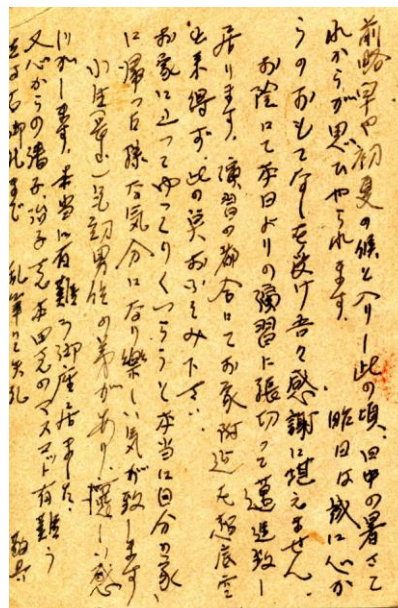 前略早や初夏の候と入りし此の頃、日中の暑さこ
れからが思ひやられます。昨日は誠に心か
らのおもてなしを受け吾々感謝に堪えません。
お陰にて本日よりの演習に張切って邁進致し
居ります。演習の都合にてお家附近を超底空
出来得ず、此の点おふくみ下さい
お家に上ってゆっくりくつろうと本当に自分の家
に帰った様な気分になり楽しい気が致します
小生 気 男 の弟があり、 しい感
じがします。本当に有難う御座居ました。
又心からの 子、治子 のマスコット有難う
右御礼まで 乱筆にて失礼 敬具